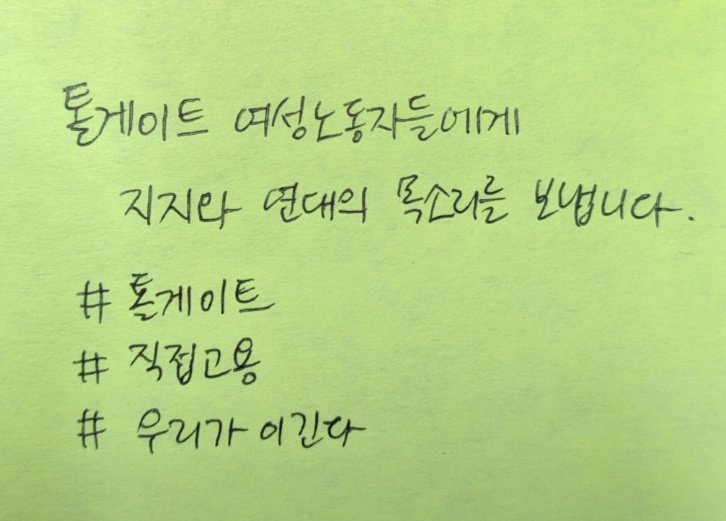 톨게이트 여성노동자들에게
지지와 연대의 목소리를 보냅니다.
# 톨게이트
# 직접고용
# 우리가 이긴다